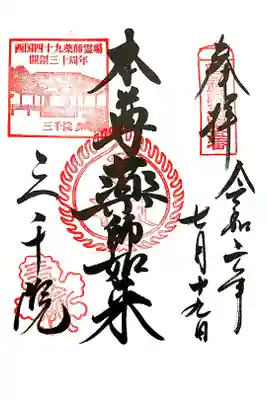 奉拝
令和二年
七月十九日
本尊薬師如来
三千院
西国四十九薬師霊場
開創三十周年
三千院